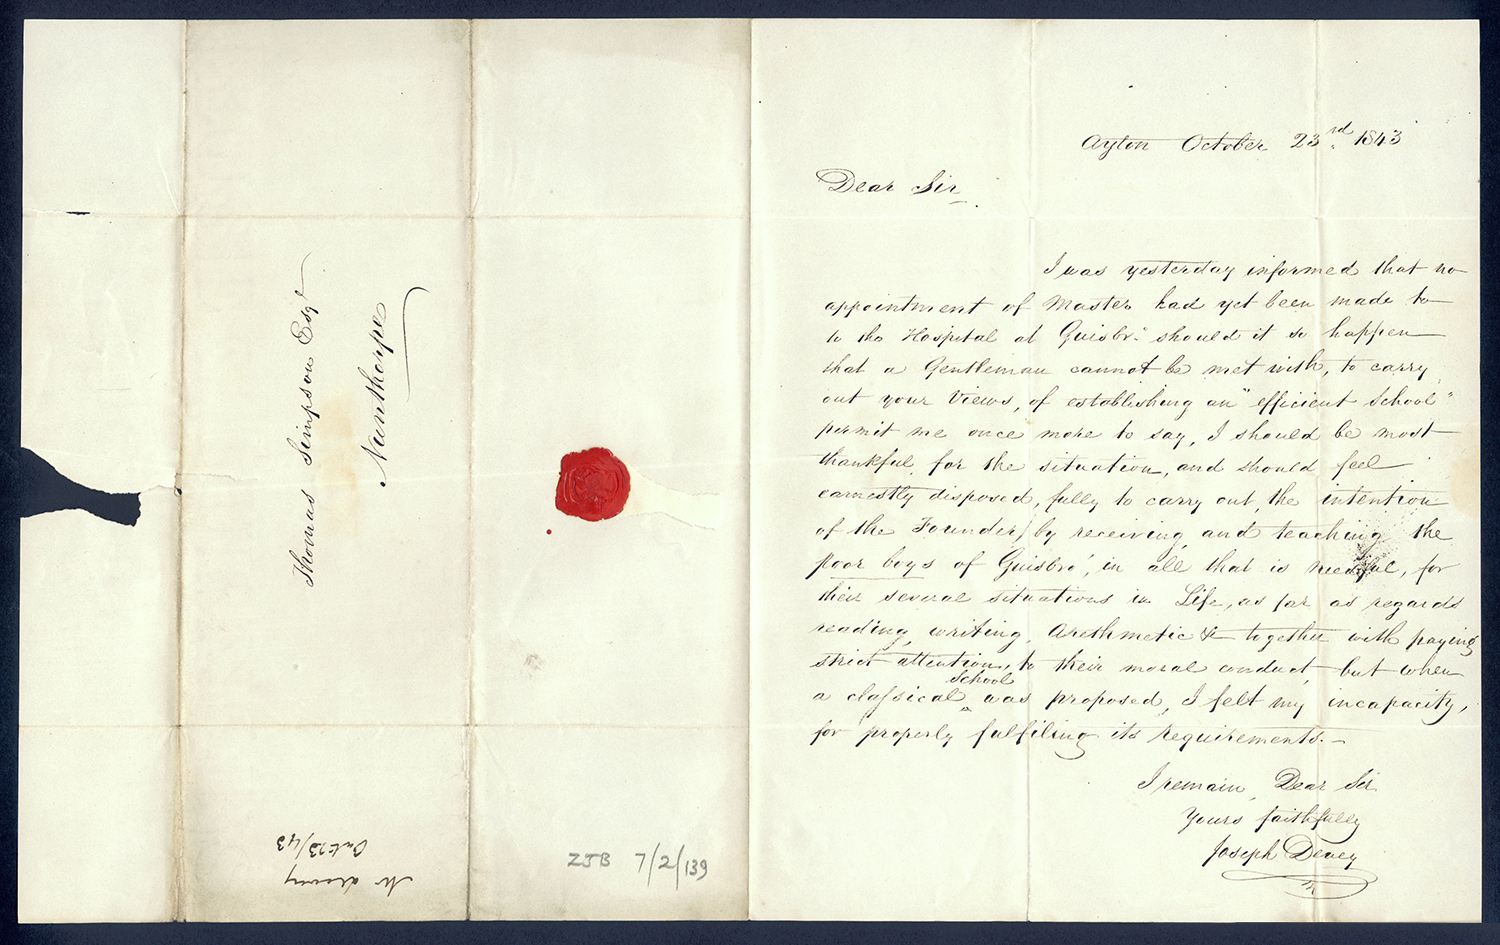 Ayton October 23rd. 1843
Dear Sir
I was yesterday informed that no
appointment of Master had yet been made to
to the Hospital at Guisbro' should it so happen
that a Gentleman cannot be met with, to carry
out your Views, of establishing an "efficient School"
permit me once more to say, I should be most
thankful for the situation, and should feel
earnestly disposed, fully to carry out, the intention
of the Founder, by receiving, and teaching the
poor boys of Guisbro', in all that is needful, for
their several situations in Life, as far as regards
reading, writing, Arethmetic &c together with paying
strict attention, to their moral conduct, but when
a classical School was proposed, I felt my incapacity,
for properly fulfiling its requirements.-
I remain, Dear Sir
Yours faithfully
Joseph
Thomas Simpson Esqr
Nunthorpe
Mr
Octr 23/43
ZJB 7/2/139